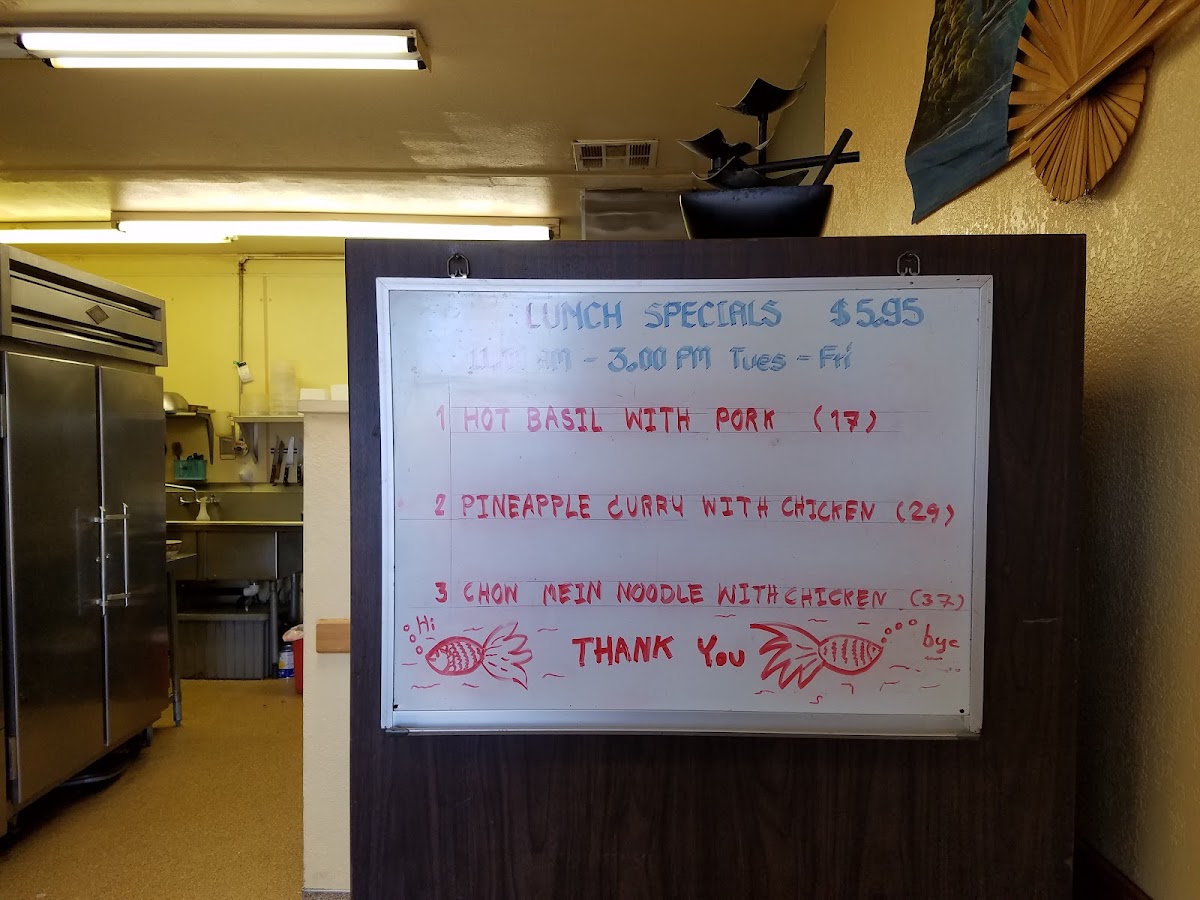 LUNCH SPECIALS $5.95
11.00 AM - 3.00 PM Tues - Fri
1 HOT BASIL WITH PORK (17)
2 PINEAPPLE CURRY WITH CHICKEN (29)
3 CHOW MEIN NOODLE WITH CHICKEN (37)
Hi
THANK YOU
bye